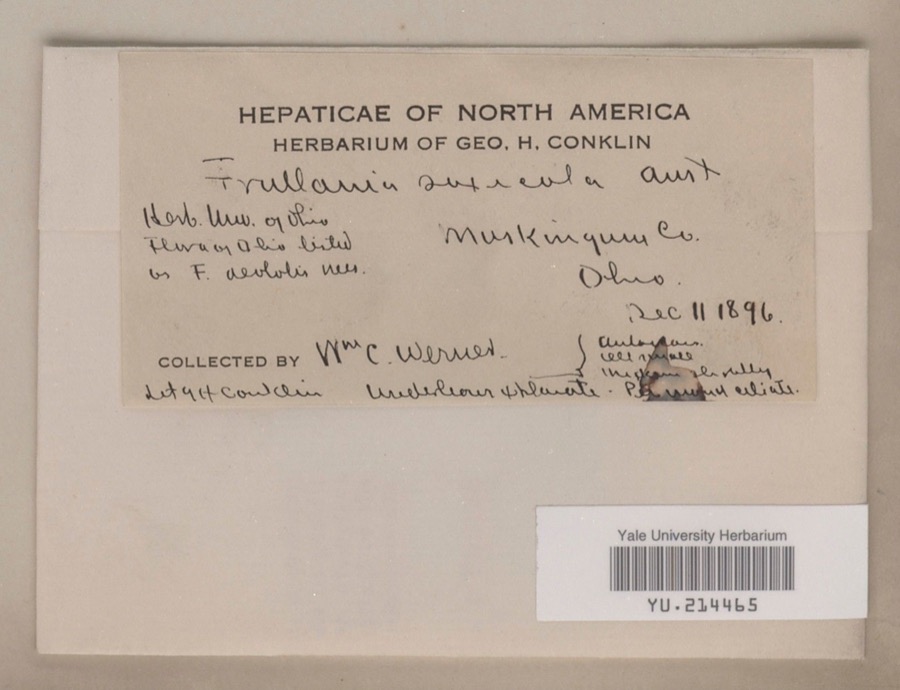 HEPATICAE OF NORTH AMERICA
HERBARIUM OF GEO. H. CONKLIN
Frullania saxicola Aust
Herb. Univ. of Ohio
Flora of Ohio listed
as F. aeolotis Nees.
Muskingum Co.
Ohio.
Dec 11 1896.
COLLECTED BY Wm C. Werner.
cell
Det G H Conklin Underleaves explanate - ciliate.
Yale University Herbarium
YU.214465